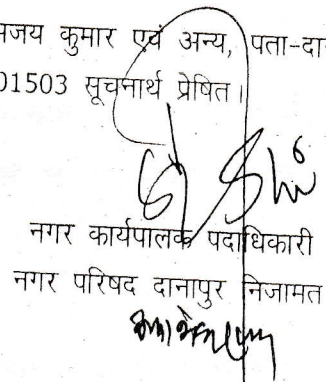 अजय कुमार एवं अन्य, पता-दा
01503 सूचनार्थ प्रेषित।
नगर कार्यपालक पदाधिकारी
नगर परिषद दानापुर निजामत